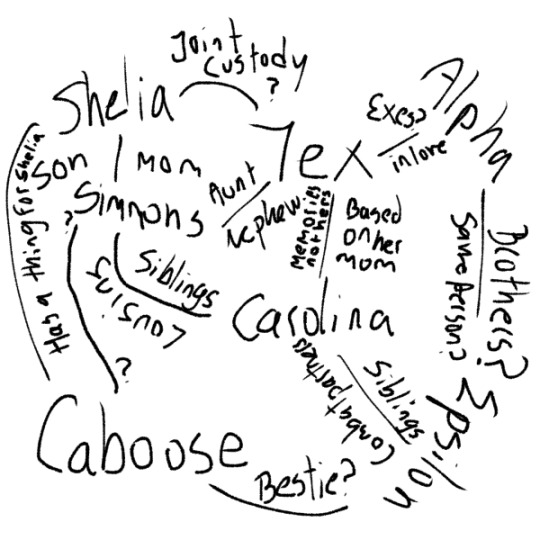 Joint
custody
?
Shelia
Tex
Alpha
Exes?
in love
Son
mom
Simmons
Aunt
Nephew
Memories
nothers
Based
on her
mom
Brothers?
Same person?
Has a thing for Shelia
?
Siblings
Cousins
?
Carolina
Siblings
Combat partners
Epsilon
Caboose
Bestie?